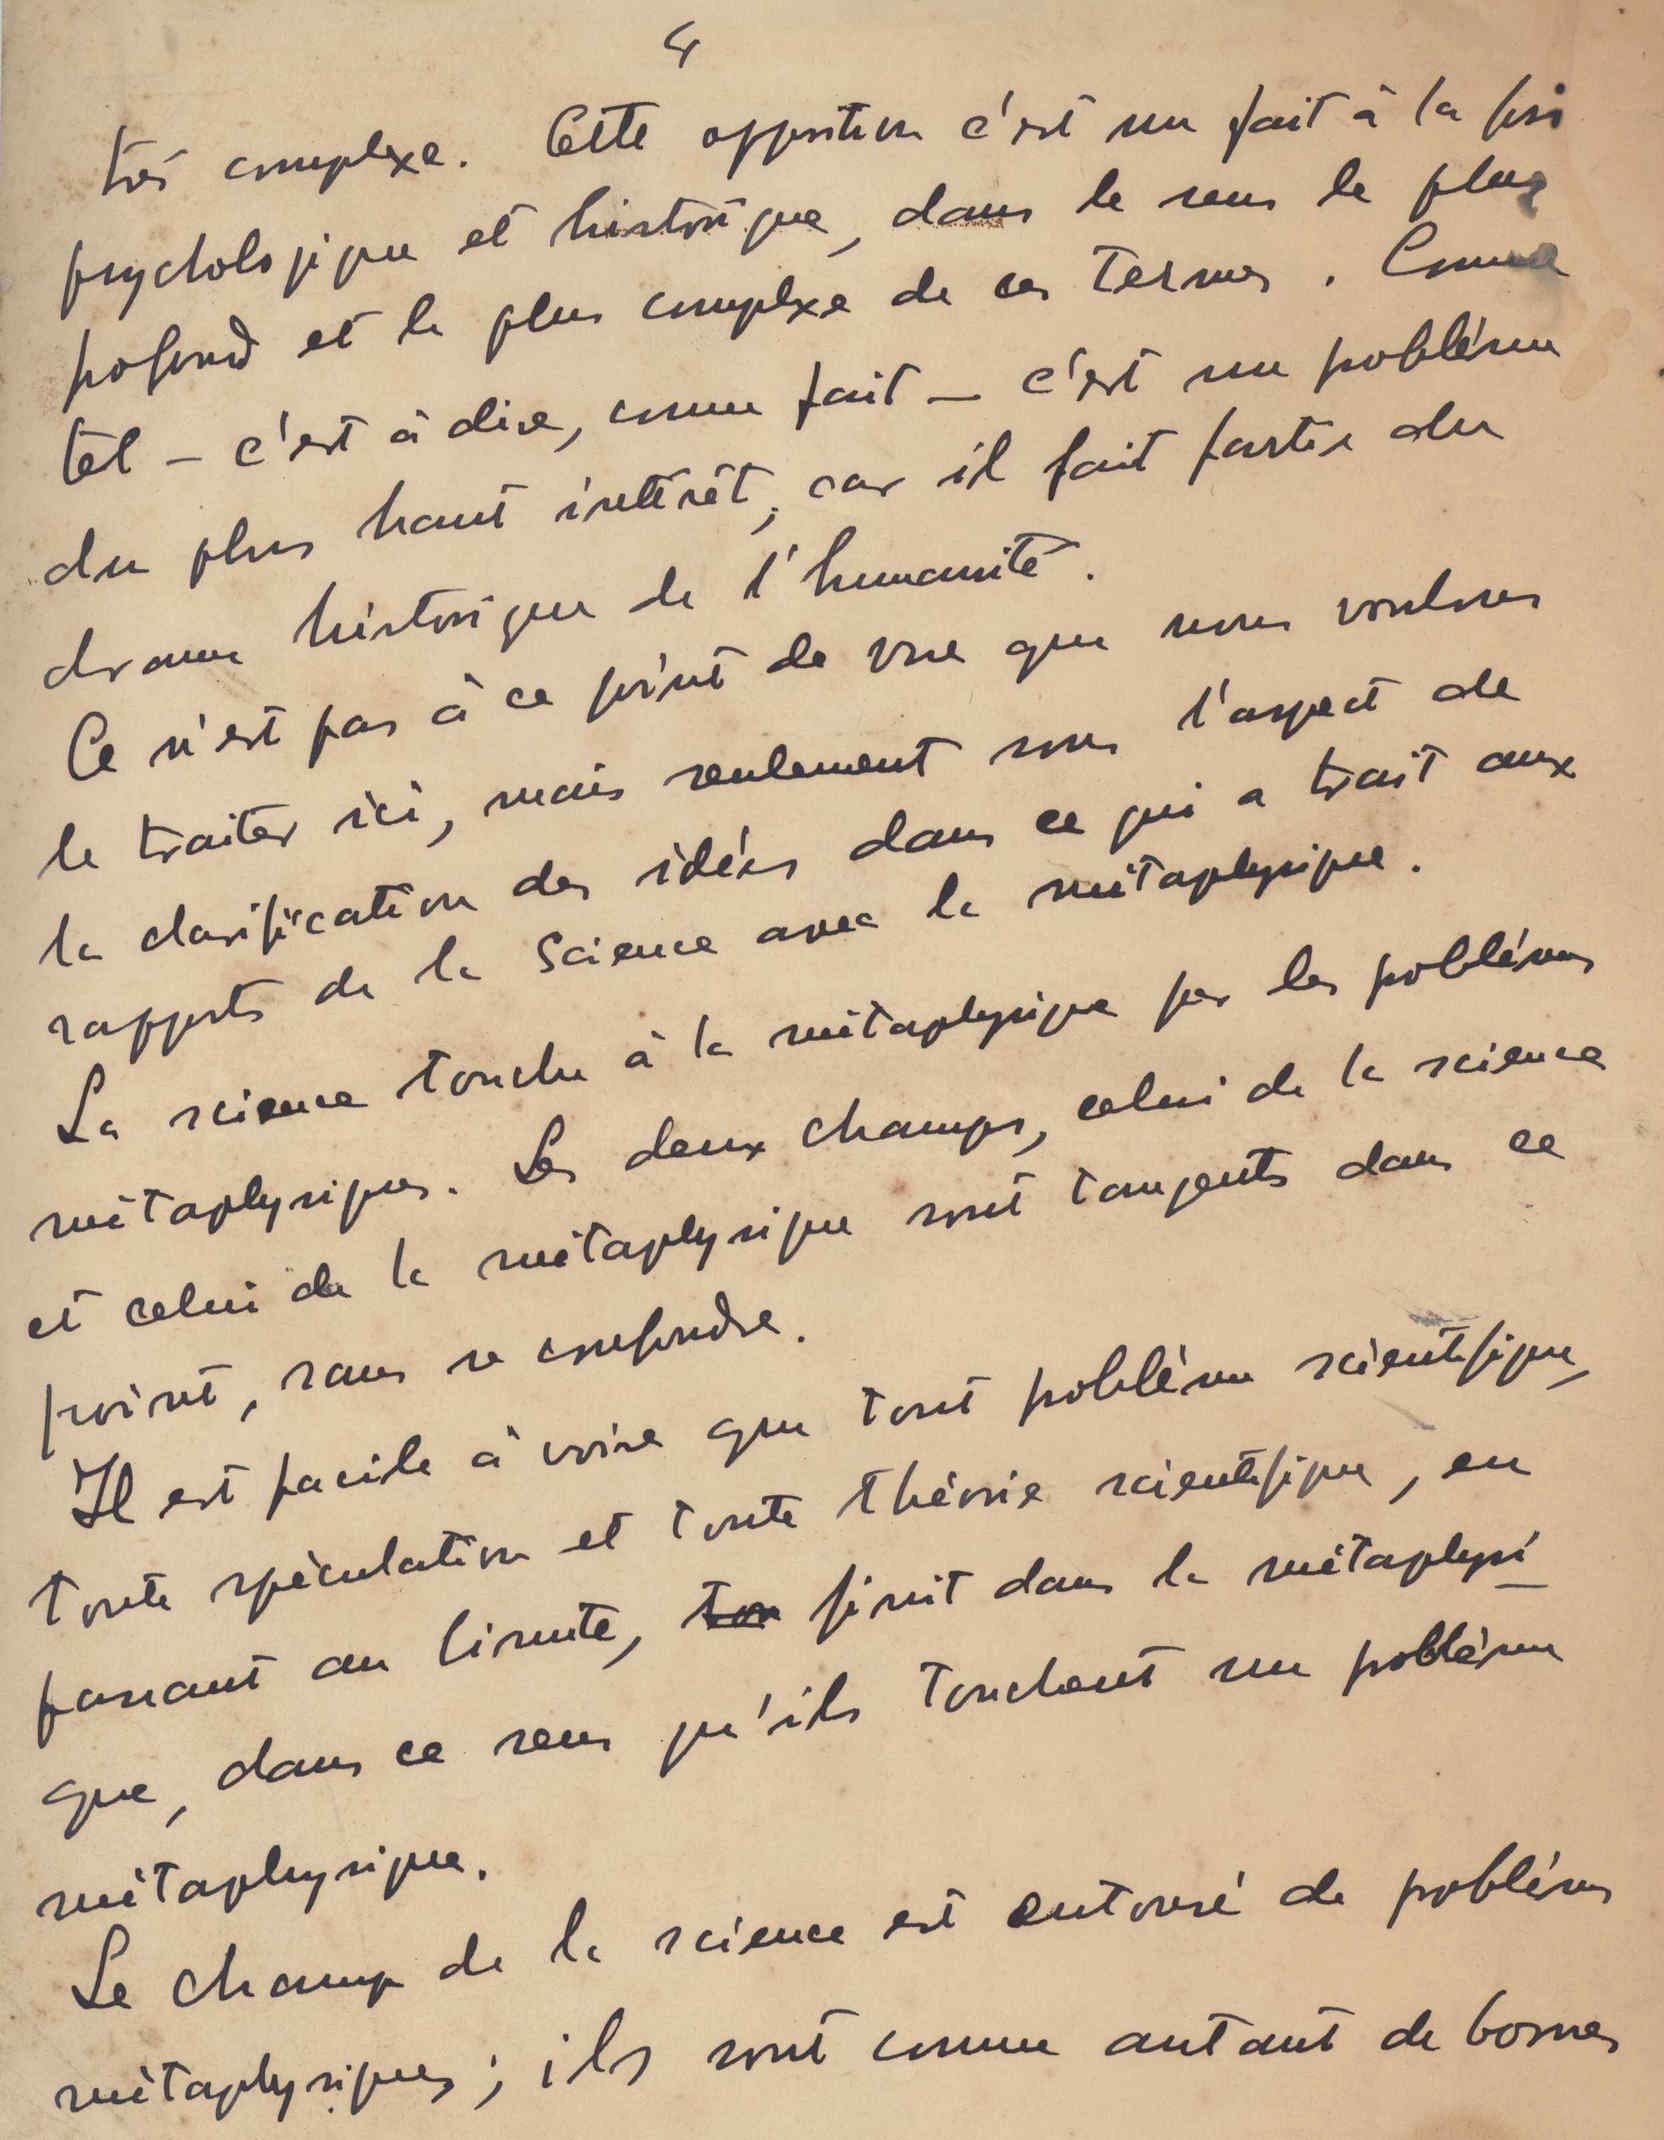 4
très complexe. Cette opposition c'est un fait à la fois
psychologique et historique, dans le sens le plus
profond et le plus complexe de ces termes. Comme
tel – c'est à dire, comme fait – c'est un problème
du plus haut intérêt, car il fait partie du
drame historique de l'humanité.
Ce n'est pas à ce point de vue que nous voulons
le traiter ici, mais seulement sous l'aspect de
la clarification des idées dans ce qui a trait aux
rapports de la Science avec la métaphysique.
La science touche à la métaphysique par les problèmes
métaphysiques. Les deux champs, celui de la science
et celui de la métaphysique sont tangents dans ce
point, sans se confondre.
Il est facile à voire que tout problème scientifique,
toute spéculation et toute théorie scientifique, en
passant au limite, finit dans la métaphysi-
que, dans ce sens qu'ils touchent un problème
métaphysique.
Le champ de la science est entouré de problèmes
métaphysiques; ils sont comme autant de bornes